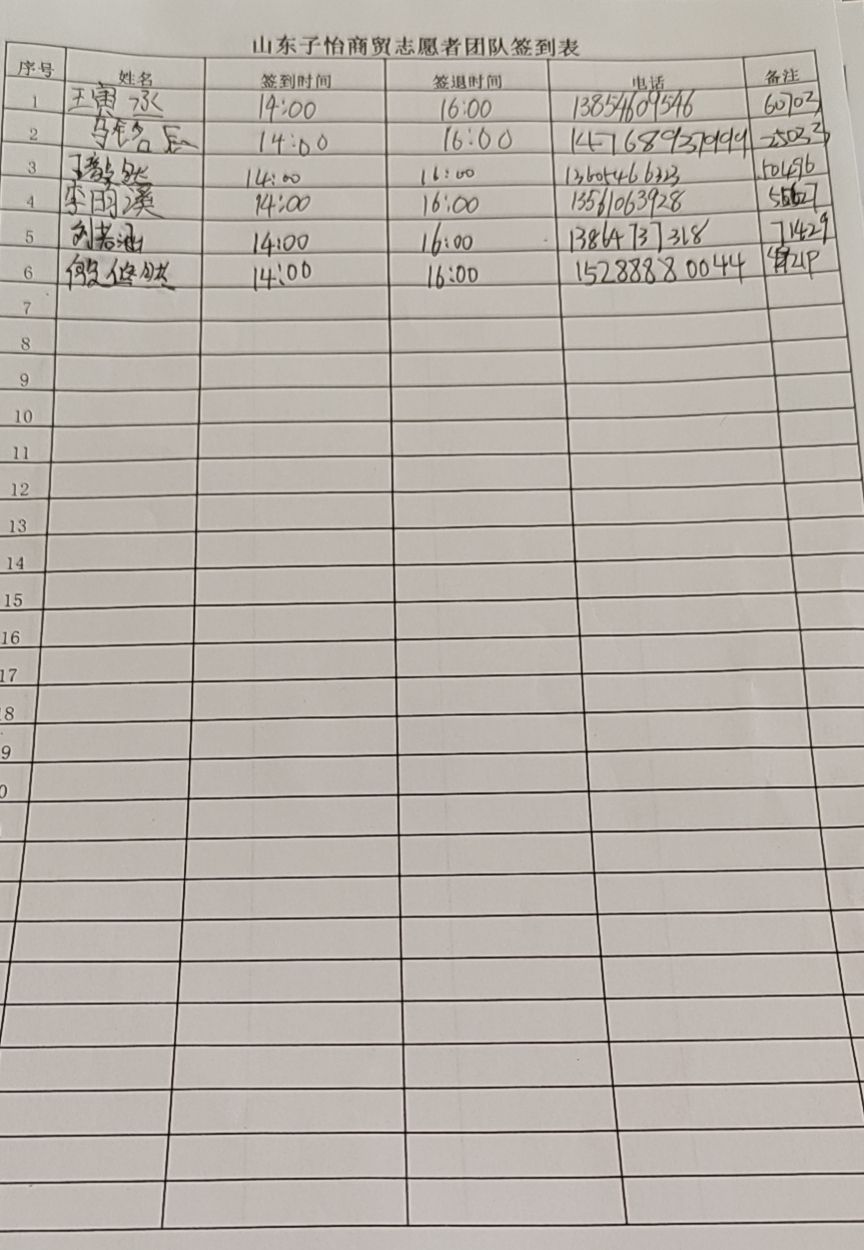 山东子怡商贸志愿者团队签到表
序号 姓名 签到时间 签退时间 电话 备注
1 王寅承 14:00 16:00 13854609546 60703
2 14:00 16:00 25033
3 王毅然 14:00 16:00 13605466323 50496
4 李雨溪 14:00 16:00 13561063928
5 刘若涵 14:00 16:00 13864737318 71429
6 14:00 16:00 15288880044
7
8
9
10
11
12
13
14
15
16
17
8
9
0